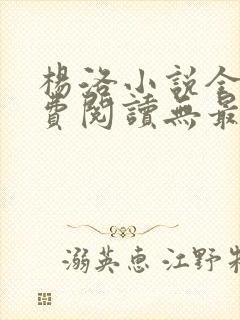 楊洛小說全
費閱讀無最
溺英惠 江野